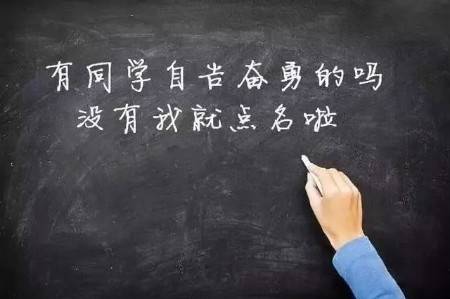 有同学自告奋勇的吗
没有我就点名啦